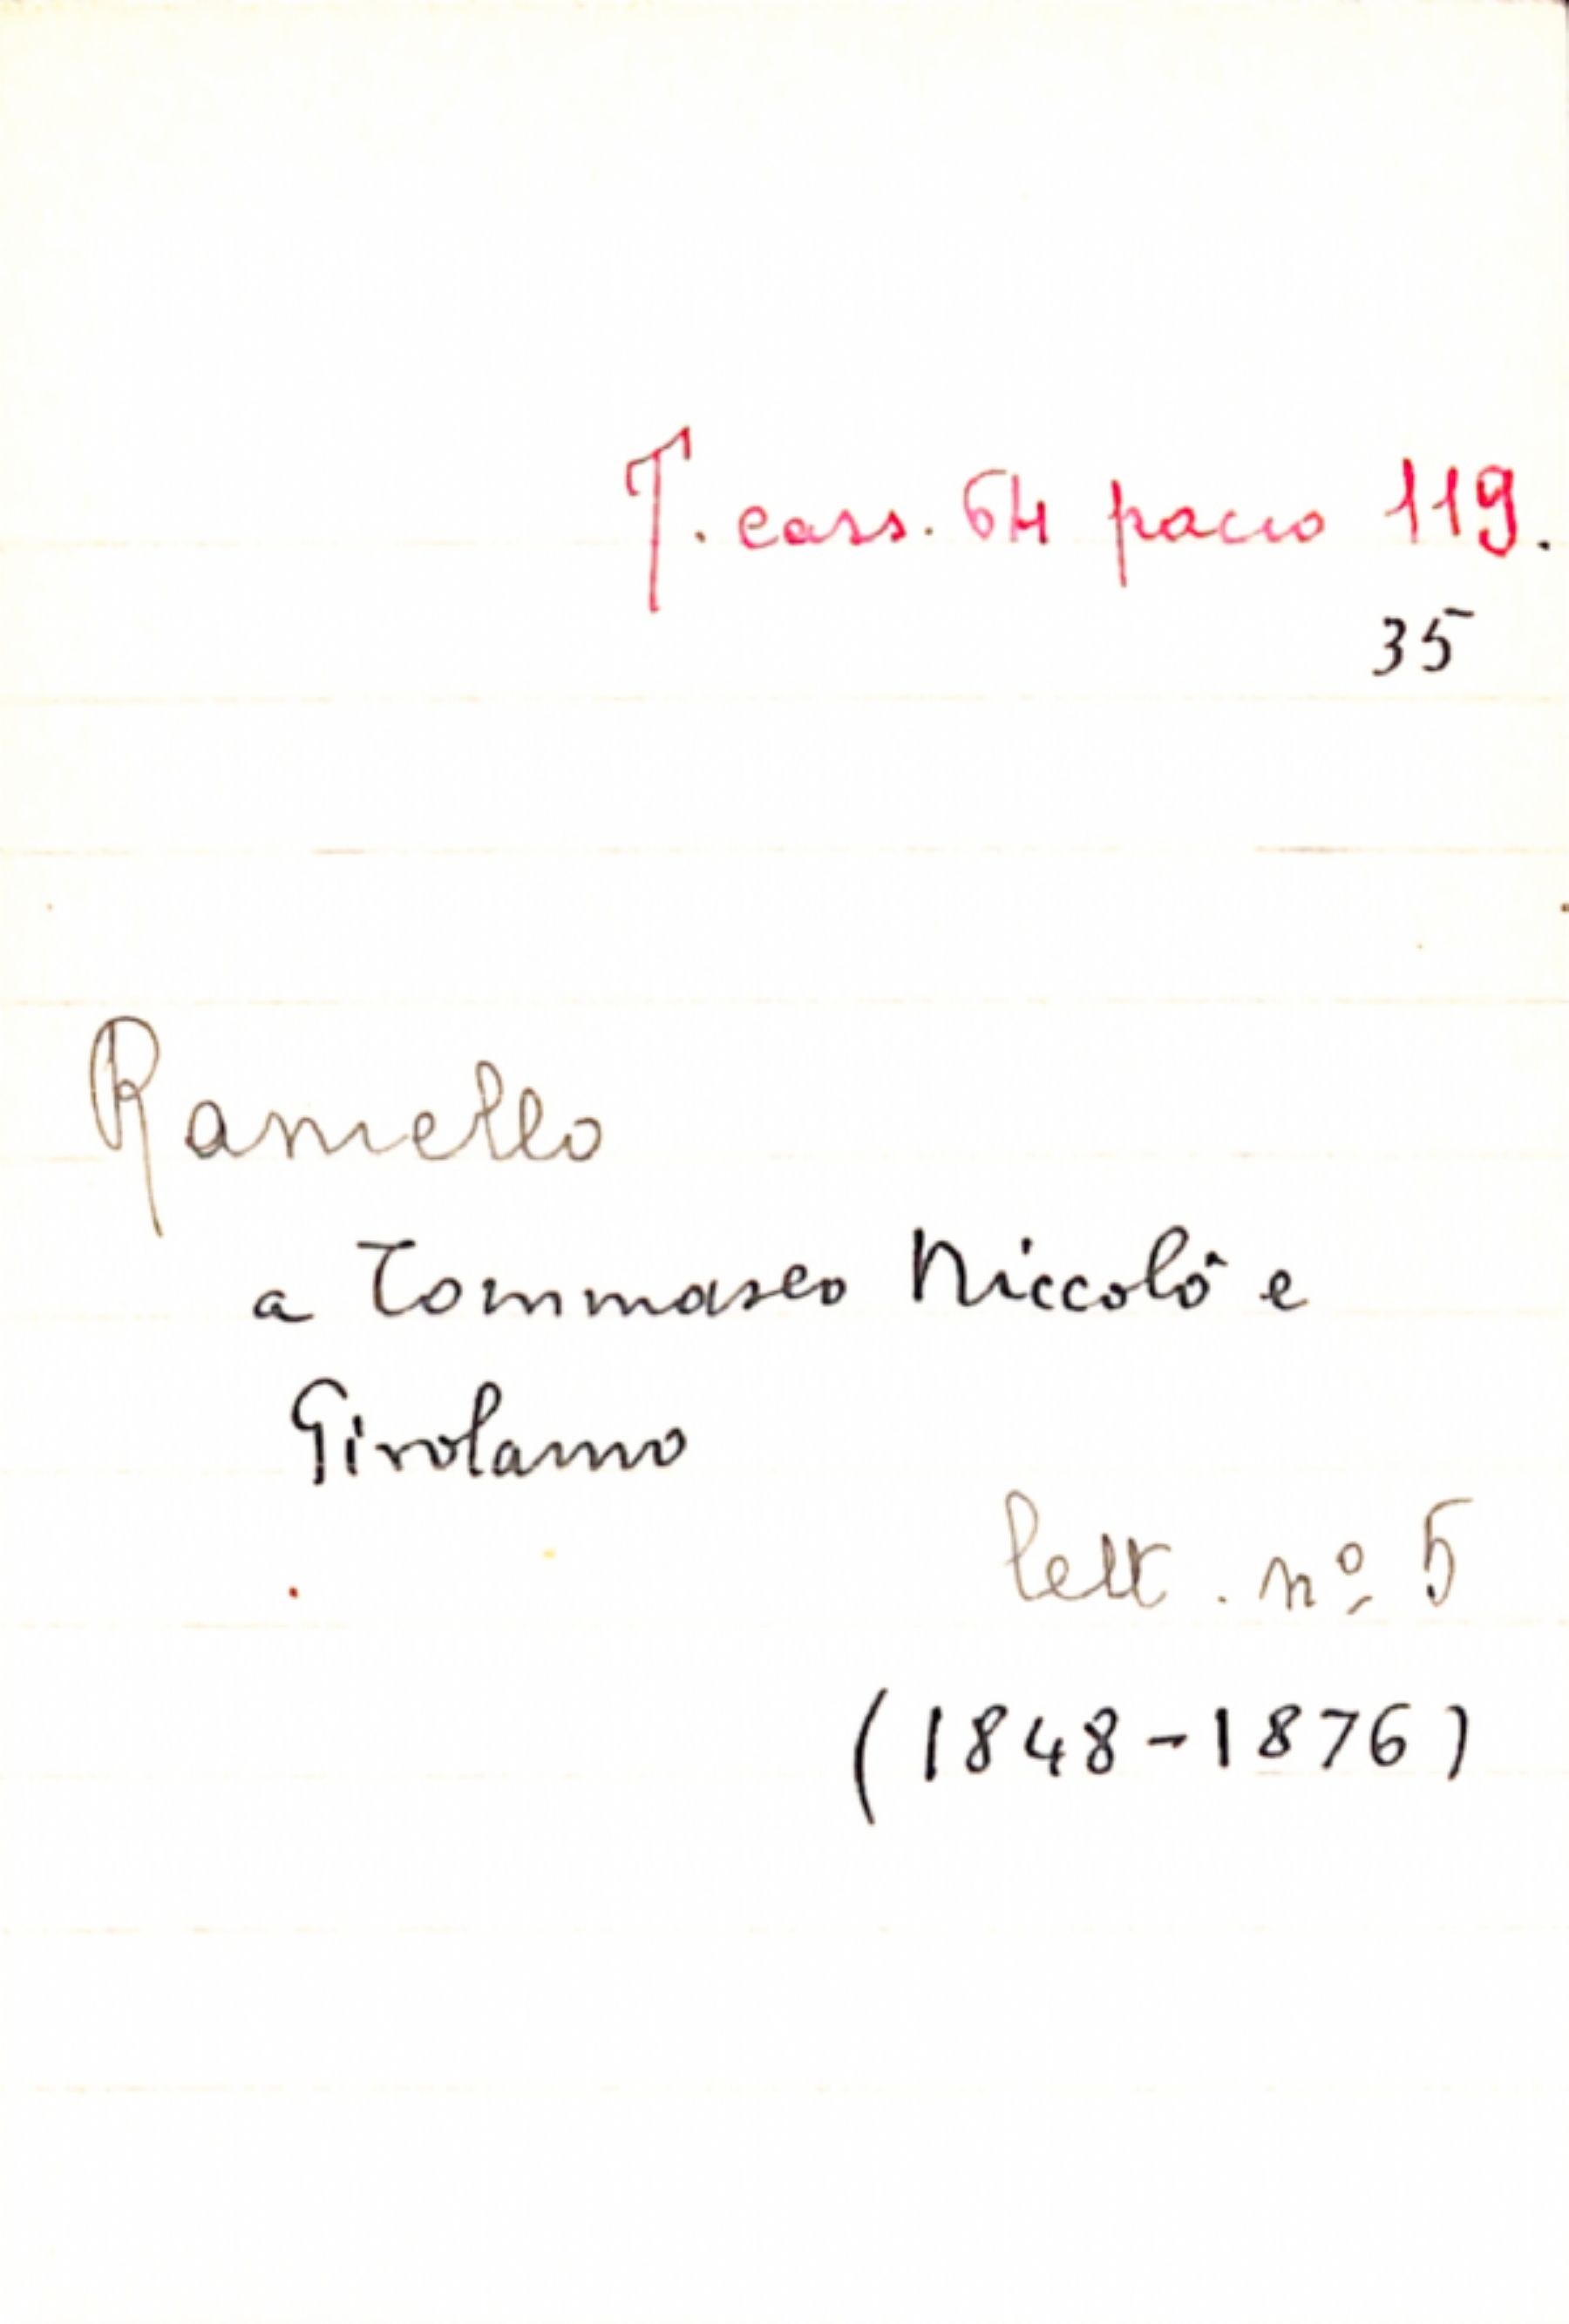 T. cass. 64 pacco 119.
35
Ramello
a Tommaseo Niccolò e
Girolamo
lett. nº 5
(1848-1876)